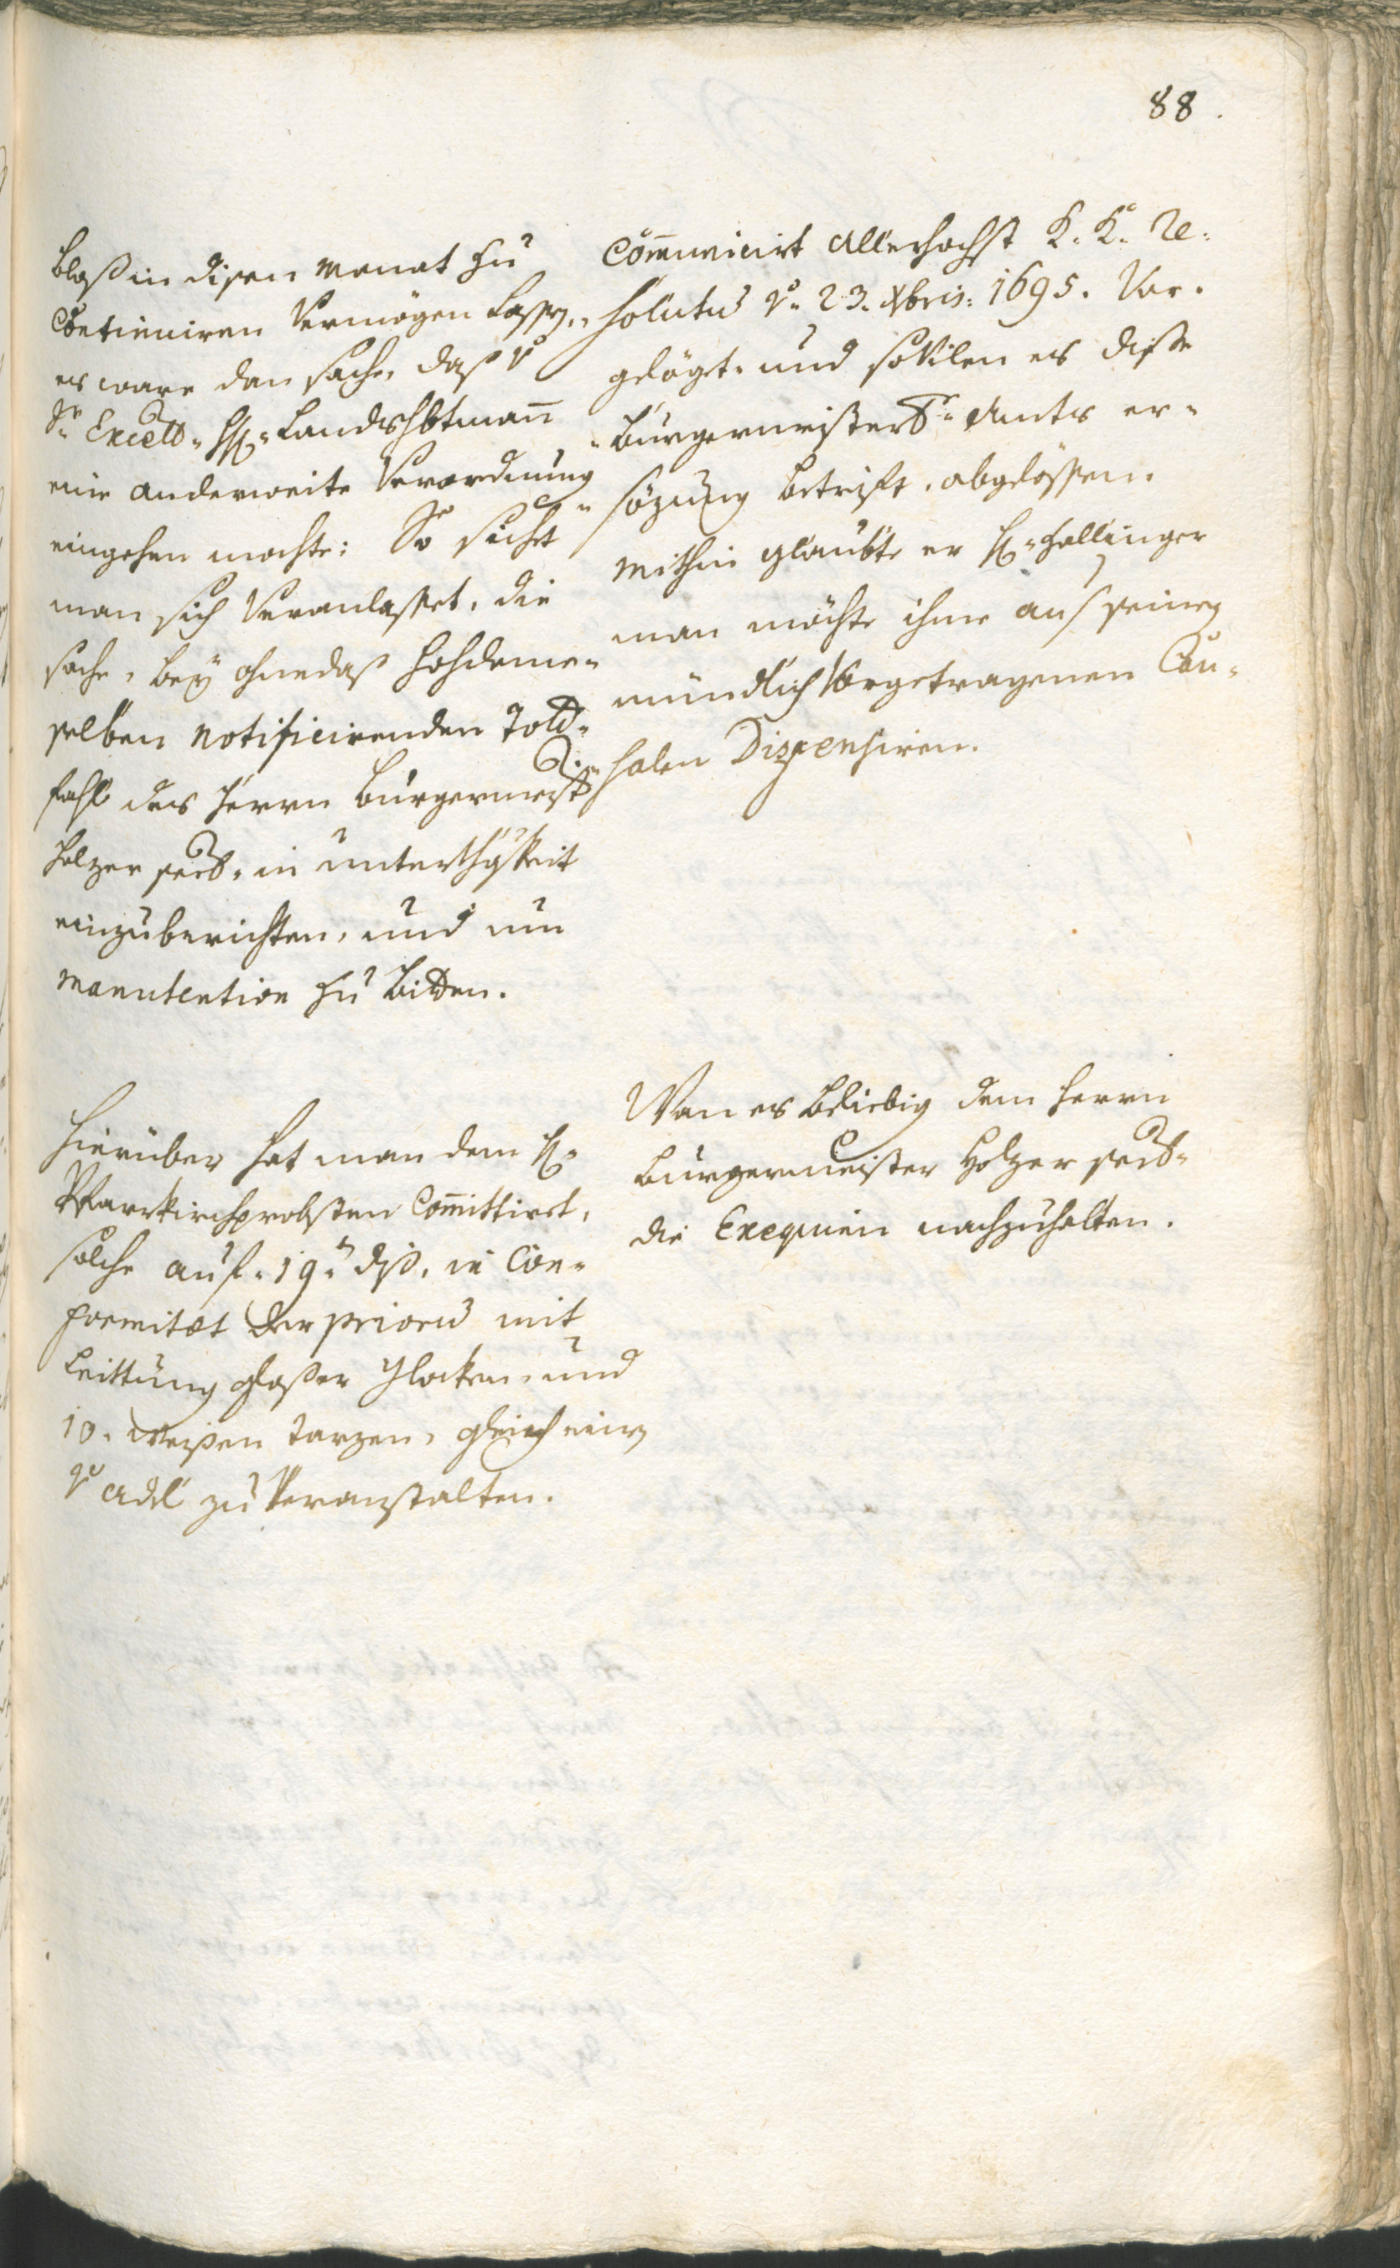 88.
bloß in disen Monat zu
Continuiren Vermögen lassen,
es ware dan sache, daß
Sr. Excell. H. Landtshbtmann
eine anderweite Verordnung
eingehen mochte: So sichet
man sich Veranlasset, die
sache, bey ohnedaß hochdeme-
selben notificirenden Todt-
fahl des Herrn Burgermeistr.
Holzer seel. in unterthgkeit
einzuberichten, und um
manutention zu bitten.
Hierüber hat man dem H.
Pfarrkirchprobsten Committirt,
solche auf 19.n diß, in Con-
formitæt der priorn mit
Leittung großer Glocken, und
10. Weißen tarzen, gleich einen
v. Adel zu Veranstalten.
Communicirt Allerhochst K. K. Re-
solution v. 23. Xbris. 1695. Vor-
gelögt, und sovilen es dise
Burgermeister Amts er-
sözung betrift, abgelössen.
Mithin glaubte er H. Hallinger
man möchte ihme auf seinen
mündlich Vorgetragenen Cau-
salen Dispensiren.
Wan es beliebig dem Herrn
Burgermeister Holzer seel.
die Exequien nachzuhalten.